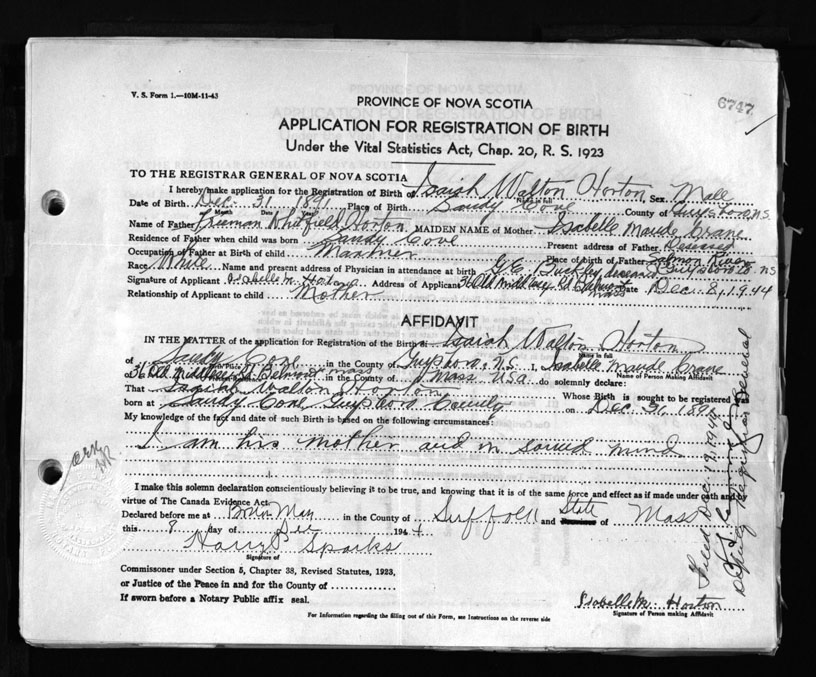 V. S. Form 1.—10M-11-43
6747
PROVINCE OF NOVA SCOTIA
APPLICATION FOR REGISTRATION OF BIRTH
Under the Vital Statistics Act, Chap. 20, R. S. 1923
TO THE REGISTRAR GENERAL OF NOVA SCOTIA
I hereby make application for the Registration of Birth of Isaiah Walton Horton Sex Male
Name in full
Date of Birth Dec. 31 1891 Place of Birth Sandy Cove County of Guysboro N.S.
Month Date Year
Name of Father Freeman Whitfield Horton MAIDEN NAME of Mother Isabelle Maude Crane
Residence of Father when child was born Sandy Cove Present address of Father Deceased
Occupation of Father at Birth of child Mariner Place of birth of Father Salmon River
Race White Name and present address of Physician in attendance at birth G.E. Buckley deceased Guysboro Co. NS
Signature of Applicant Isabelle M. Horton Address of Applicant 36 Old Middlesex Rd Belmont Mass Date Dec. 8, 1944
Relationship of Applicant to child Mother
AFFIDAVIT
IN THE MATTER of the application for Registration of the Birth of Isaiah Walton Horton
Name in full
of Sandy Cove in the County of Guysboro, N.S. I, Isabelle Maude Crane
Name of Person Making Affidavit
of 36 Old Middlesex Rd Belmont Mass in the County of Mass USA. do solemnly declare:
That Isaiah Walton Horton Whose Birth is sought to be registered was
born at Sandy Cove Guysboro County on Dec. 31, 1891
My knowledge of the fact and date of such Birth is based on the following circumstances:
I am his mother and in sound mind
I make this solemn declaration conscientiously believing it to be true, and knowing that it is of the same force and effect as if made under oath and by
virtue of The Canada Evidence Act.
Declared before me at Boston Mass in the County of Suffolk and State of Mass
this 8 day of Dec 1944
Harry Sparks
Signature of
Commissioner under Section 5, Chapter 38, Revised Statutes, 1923,
or Justice of the Peace in and for the County of
If sworn before a Notary Public affix seal.
Isabelle M. Horton
Signature of Person making Affidavit
For Information regarding the filling out of this Form, see Instructions on the reverse side
Filed Dec. 19, 1944
Deputy Registrar General